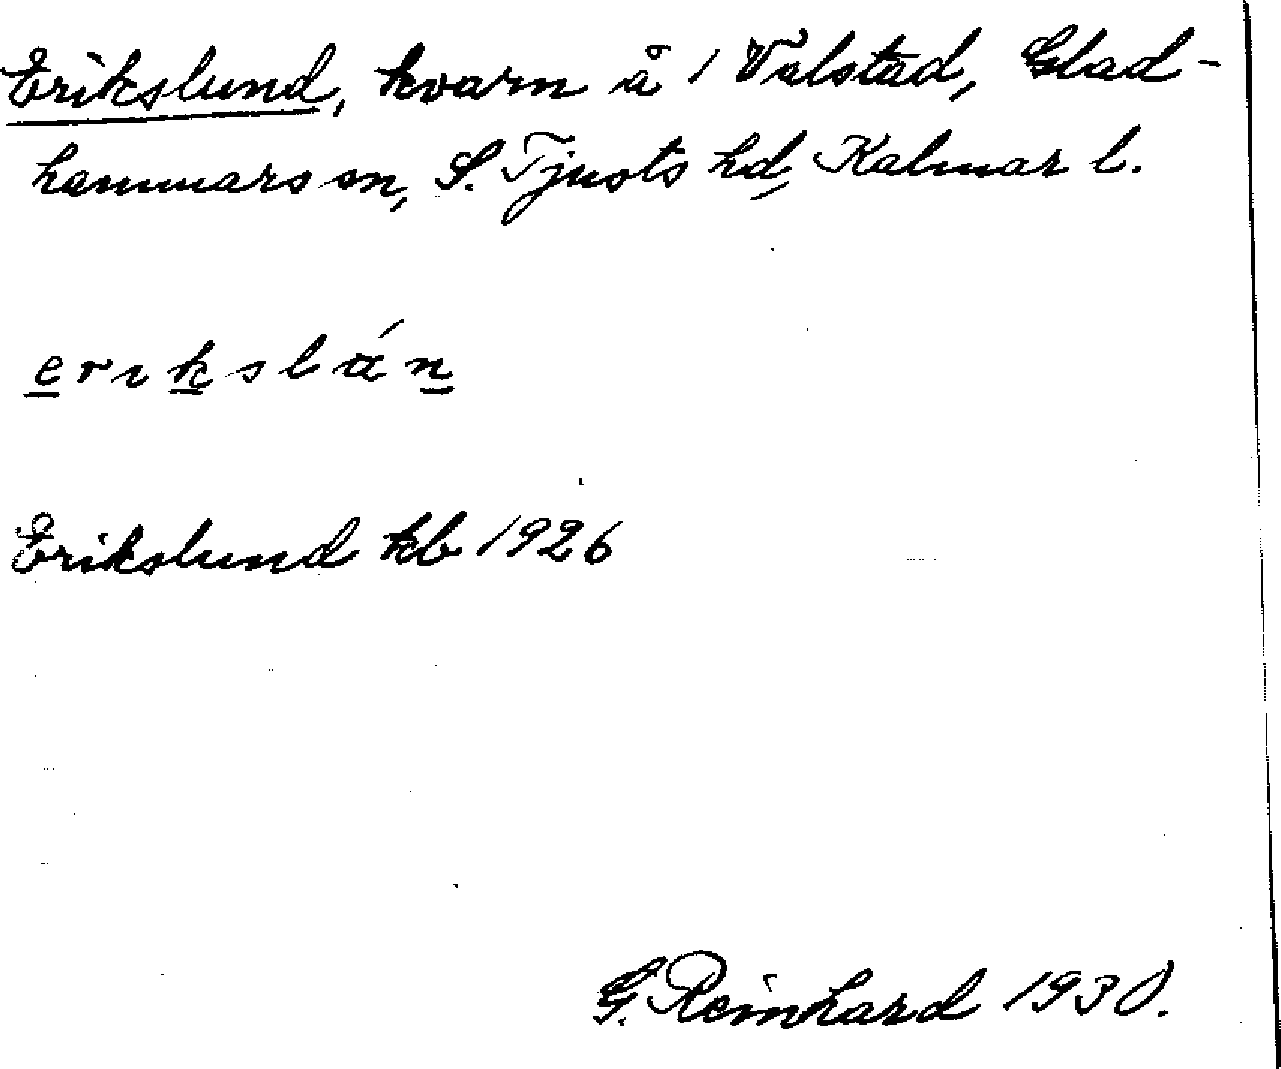 Erikslund, kvarn å 1 Valstad, Glad-
hammars sn, S. Tjusts hd, Kalmar l.
erikslán
Erikslund kb 1926
G. Reinhard 1930.